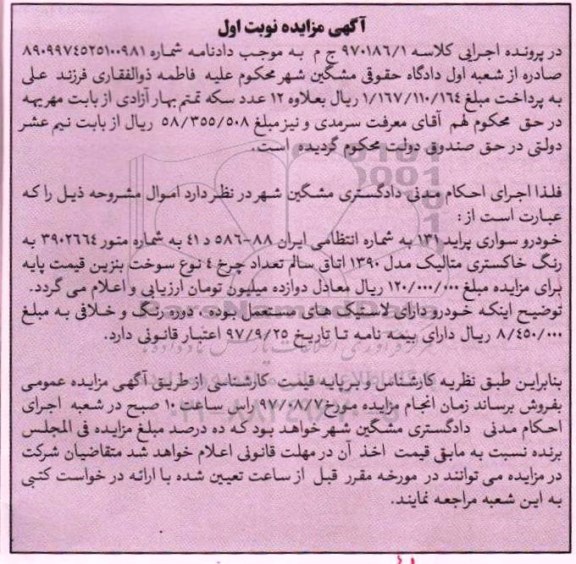 آگهی مزایده نوبت اول
در پرونده اجرایی کلاسه ۹۷۰۱۸۶/۱ ج م به موجب دادنامه شماره ۸۹۰۹۹۷۴۵۲۵۱۰۰۹۸۱
صادره از شعبه اول دادگاه حقوقی مشگین شهر محکوم علیه فاطمه ذوالفقاری فرزند علی
به پرداخت مبلغ ۱/۱۶۷/۱۱۰/۱۶۴ ریال بعلاوه ۱۲ عدد سکه تمتم بهار آزادی از بابت مهریه
در حق محکوم لهم آقای معرفت سرمدی و نیز مبلغ ۵۸/۳۵۵/۵۰۸ ریال از بابت نیم عشر
دولتی در حق صندوق دولت محکوم گردیده است.
فلذا اجرای احکام مدنی دادگستری مشگین شهر در نظر دارد اموال مشروحه ذیل را که
عبارت است از :
خودرو سواری پراید ۱۳۱ به شماره انتظامی ایران ۸۸-۵۸۶ د ۴۱ به شماره متور ۳۹۰۲۶۶۴ به
رنگ خاکستری متالیک مدل ۱۳۹۰ اتاق سالم تعداد چرخ ۴ نوع سوخت بنزین قیمت پایه
برای مزایده مبلغ ۱۲۰/۰۰۰/۰۰۰ ریال معادل دوازده میلیون تومان ارزیابی و اعلام می گردد.
توضیح اینکه خودرو دارای لاستیک های مستعمل بوده ، دوره رنگ و خلافی به مبلغ
۸/۴۵۰/۰۰۰ ریال دارای بیمه نامه تا تاریخ ۹۷/۹/۲۵ اعتبار قانونی دارد.
بنابراین طبق نظریه کارشناس و بر پایه قیمت کارشناسی از طریق آگهی مزایده عمومی
بفروش برساند زمان انجام مزایده مورخ ۹۷/۰۷/۷ راس ساعت ۱۰ صبح در شعبه اجرای
احکام مدنی دادگستری مشگین شهر خواهد بود که ده درصد مبلغ مزایده فی المجلس
برنده نسبت به مابقی قیمت اخذ آن در مهلت قانونی اعلام خواهد شد متقاضیان شرکت
در مزایده می توانند در مورخه مقرر قبل از ساعت تعیین شده با ارائه در خواست کتبی
به این شعبه مراجعه نمایند.